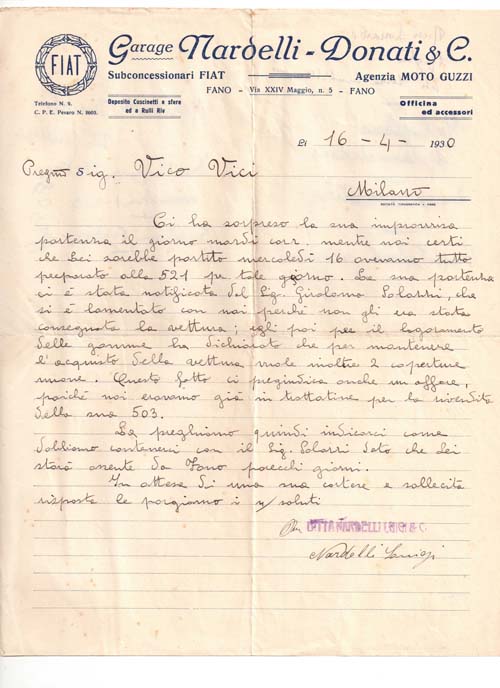 FIAT
Garage Nardelli - Donati & C.
Subconcessionari FIAT
Agenzia MOTO GUZZI
FANO - Via XXIV Maggio, n. 5 - FANO
Telefono N. 9.
C. P. E. Pesaro N. 8603.
Deposito Cuscinetti a sfera
ed a Rulli Riv
Officina
ed accessori
li 16 - 4 - 1930
Pregmo Sig. Vico Vici
Milano
Ci ha sorpreso la sua improvvisa
partenza il giorno mardi corr. mentre noi certi
che Lei sarebbe partito mercoledì 16 avevamo tutto
preparato alla 521 pe tale giorno. La sua partenza
ci è stata notificata dal Sig. Girolamo Solazzi, che
si è lamentato con noi perchè non gli era stata
consegnata la vettura; egli poi per il logoramento
delle gomme ha dichiarato che per mantenere
l'acquisto della vettura vuole inoltre 2 coperture
nuove. Questo fatto ci pregiudica anche un affare,
poichè noi eravamo già in trattative per la rivendita
della sua 503.
La preghiamo quindi indicarci come
dobbiamo contenerci con il Sig. Solazzi dato che Lei
starà assente da Fano parecchi giorni.
In attesa di una sua cortese e sollecita
risposta le porgiamo i n/ saluti
Per DITTA NARDELLI LUIGI & C.
Nardelli Luigi